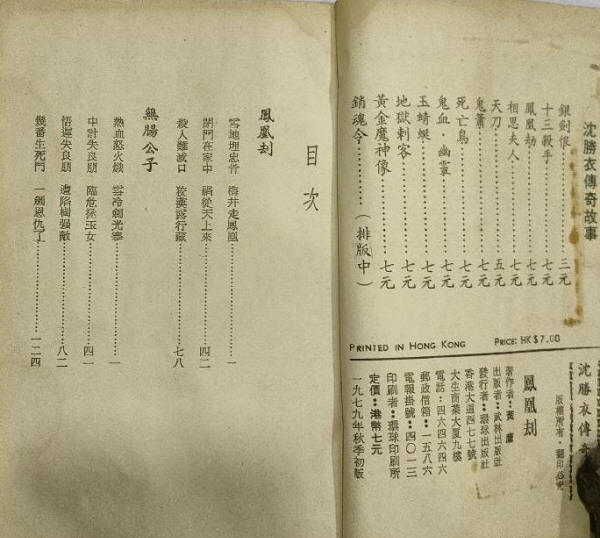 沈勝衣傳奇故事
銀劍恨………三元
十三殺手………七元
鳳凰劫………七元
相思夫人………七元
天刀………五元
鬼簫………七元
死亡鳥………七元
鬼血·幽靈………七元
玉蜻蜓………七元
地獄刺客………七元
黃金魔神像………七元
銷魂令………(排版中)
PRINTED IN HONG KONG
PRICE: HK$7.00
沈勝衣傳奇
版權所有·翻印必究
鳳凰刦
著作者：黃鷹
出版者：武林出版社
發行者：環球出版社
香港大道西四七七號
大生商業大厦九樓
電話：四六四六四六
郵政信箱：一五八六
電報掛號：四〇一三
印刷者：環球印刷所
定價：港幣七元
一九七九年秋季初版
目次
鳳凰刦
雪地埋忠骨 ………一
閉門在家中 禍從天上來………四二
殺人難滅口 ………七八
無腸公子
熱血怒火熾 雪冷劍光寒………一
中計失良朋 臨危拯玉女………四一
悟遲失良朋 遭陷樹強敵………八二
幾番生死鬥 一劍恩仇了………一二四